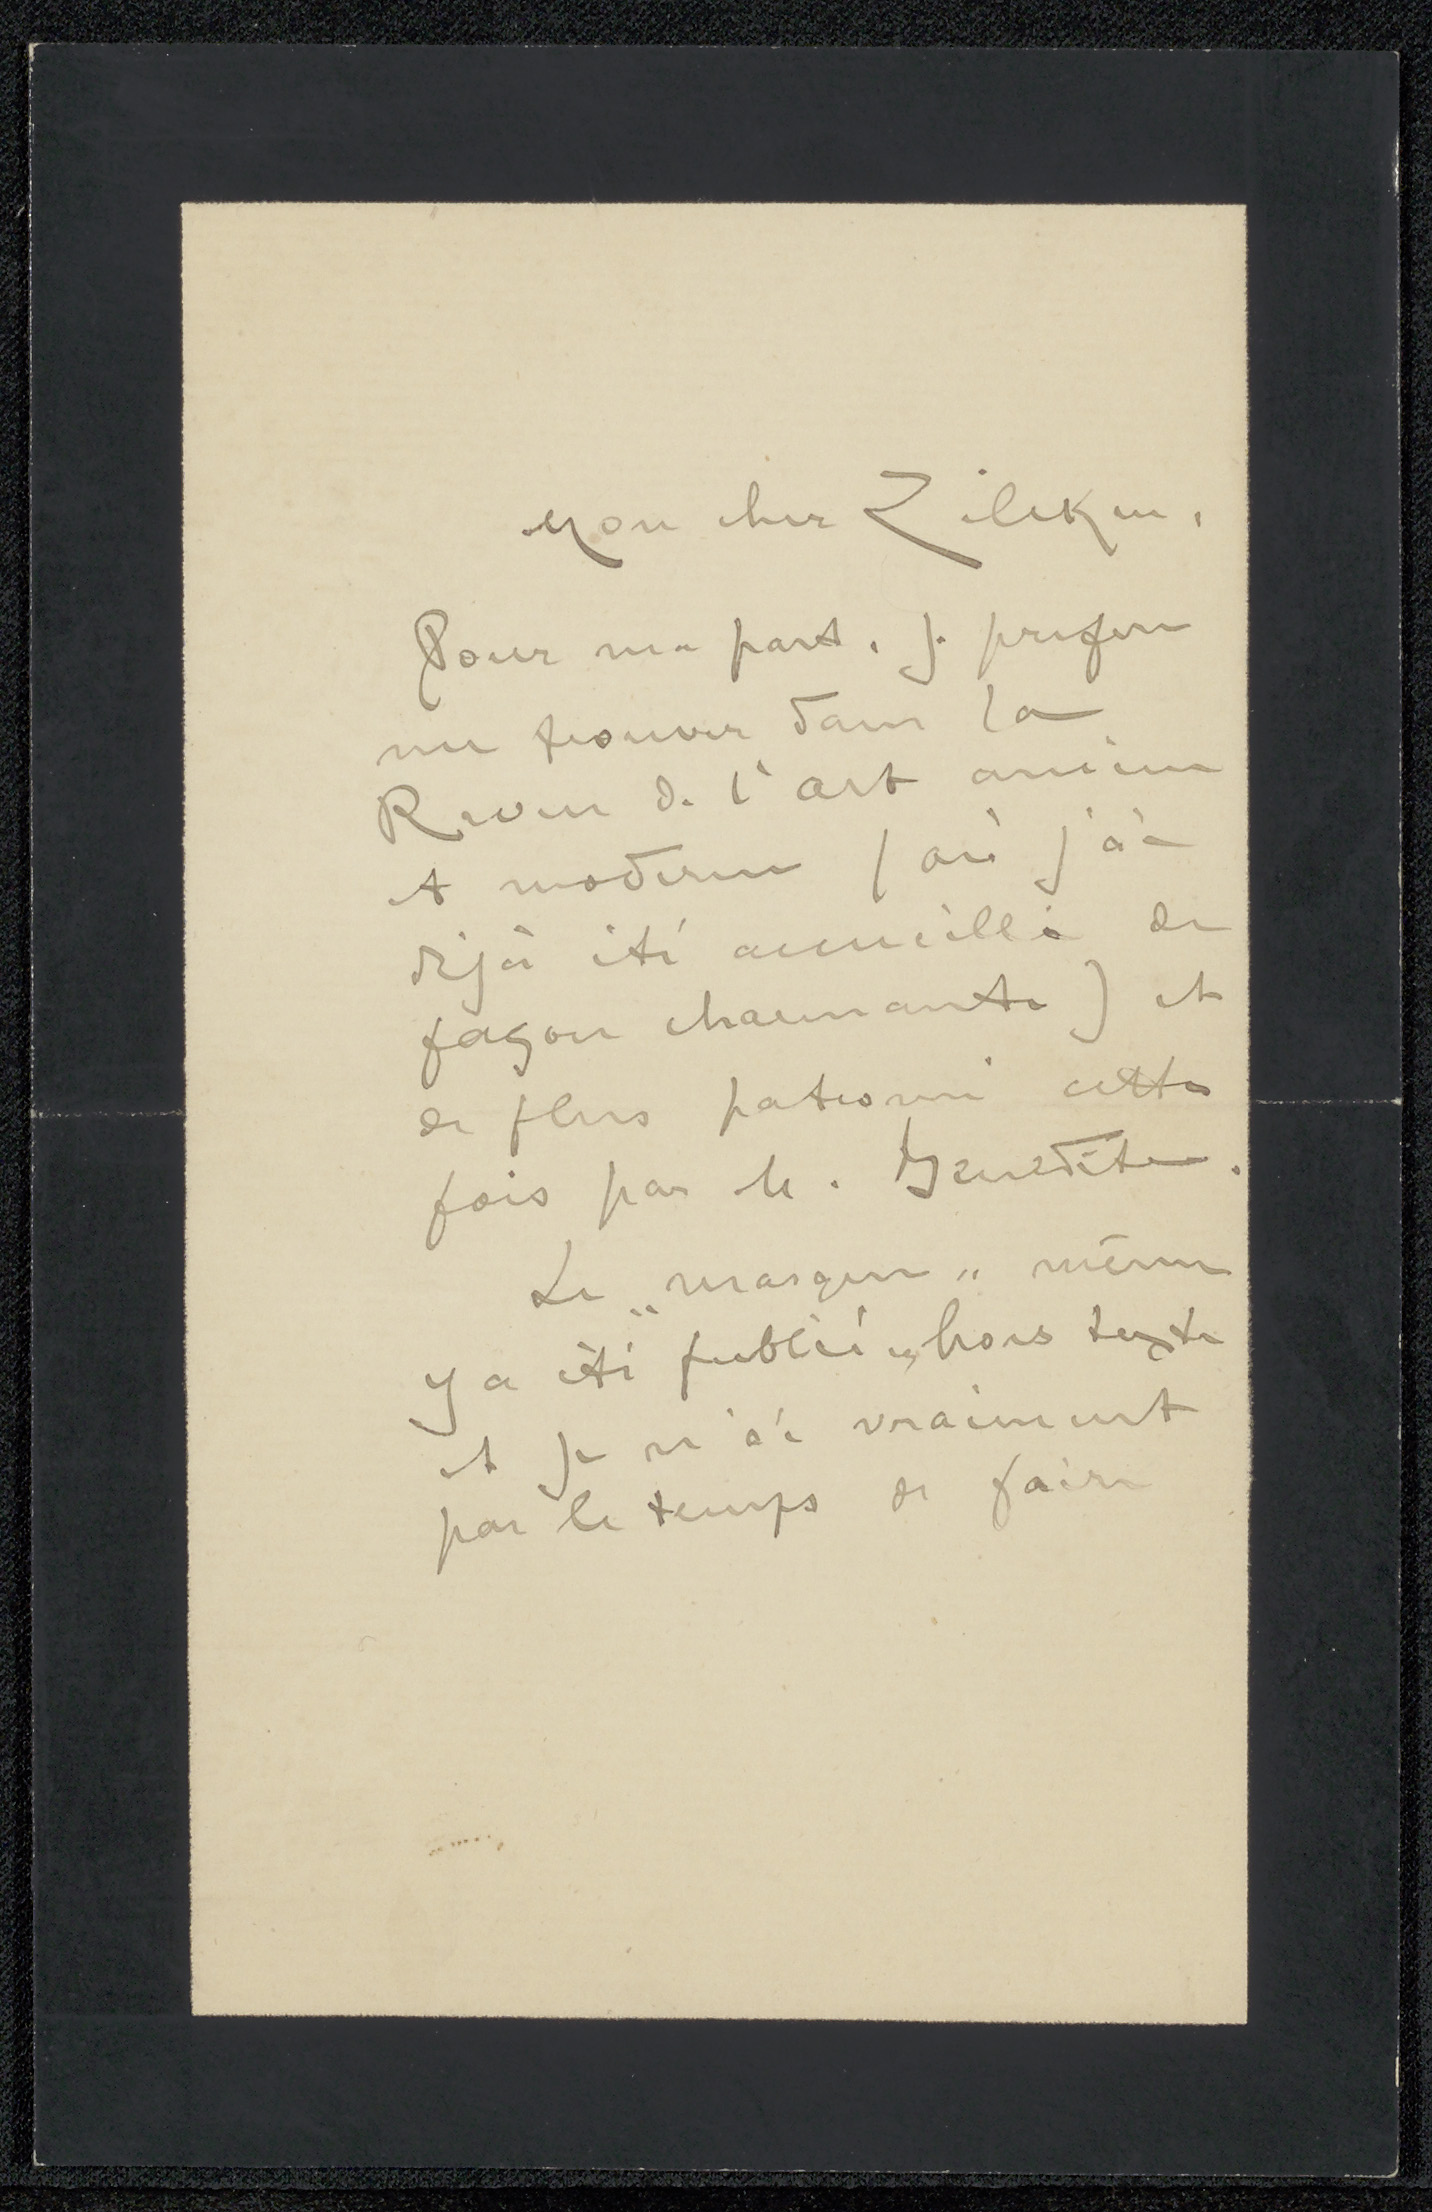 Mon cher Zilcken,
Pour ma part, je prefere
me trouver dans la
Revue de l'art ancien
et moderne (où j'ai
déjà été accueilli de
façon charmante) et
de plus patronné cette
fois par M. Benedite.
Le „masque" même
y a été publié „hors texte
et je n'ai vraiment
pas le temps de faire